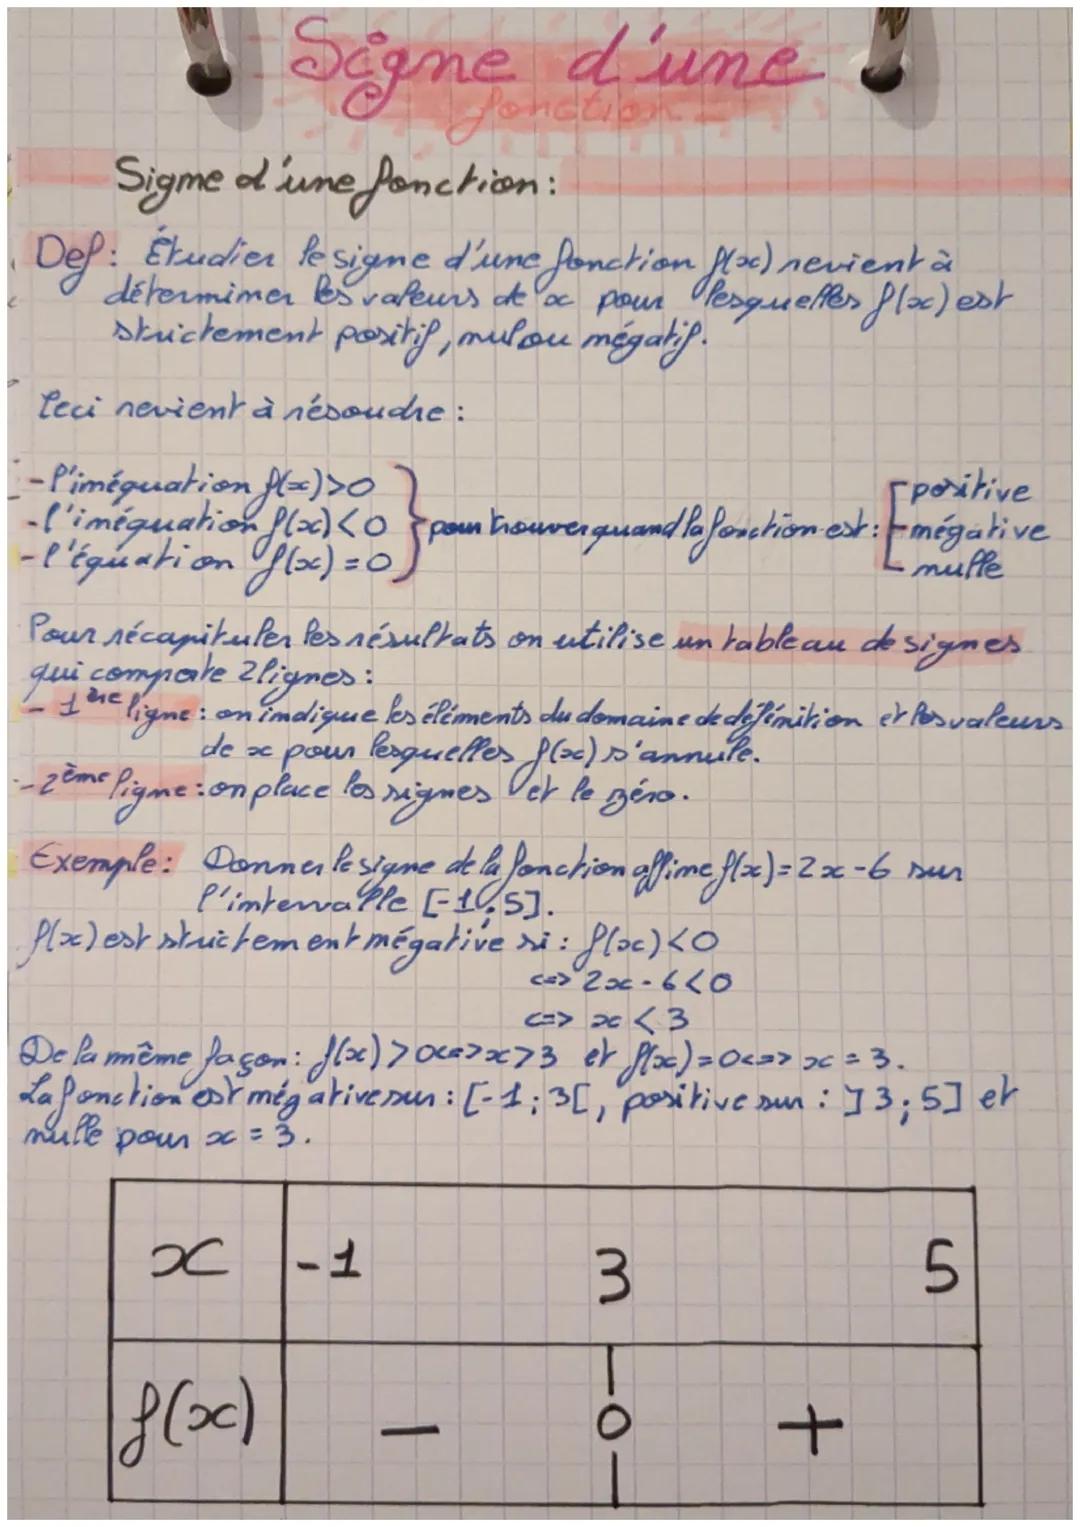 Signe d'une
fonction
Signe d'une fonction :
Def : Étudier le signe d'une fonction f(x) revient à
déterminer les valeurs de x pour lesquelles f(x) est
strictement positif, nul ou négatif.
Ceci revient à résoudre :
- l'inéquation f(x)>0
- l'inéquation f(x)<0
- l'équation f(x)=0
pour trouver quand la fonction est :
positive
négative
nulle
Pour récapituler les résultats on utilise un tableau de signes
qui comporte 2 lignes :
- 1ère ligne : on indique les éléments du domaine de définition et les valeurs
de x pour lesquelles f(x) s'annule.
- 2ème ligne : on place les signes et le zéro.
Exemple : Donner le signe de la fonction affine f(x)=2x-6 sur
l'intervalle [-1;5].
f(x) est strictement négative si : f(x)<0
<=> 2x-6<0
<=> x<3
De la même façon : f(x)>0<=>x>3 et f(x)=0<=>x=3.
La fonction est négative sur : [-1;3[, positive sur : ]3;5] et
nulle pour x=3.
x -1 3 5
f(x) - 0 +